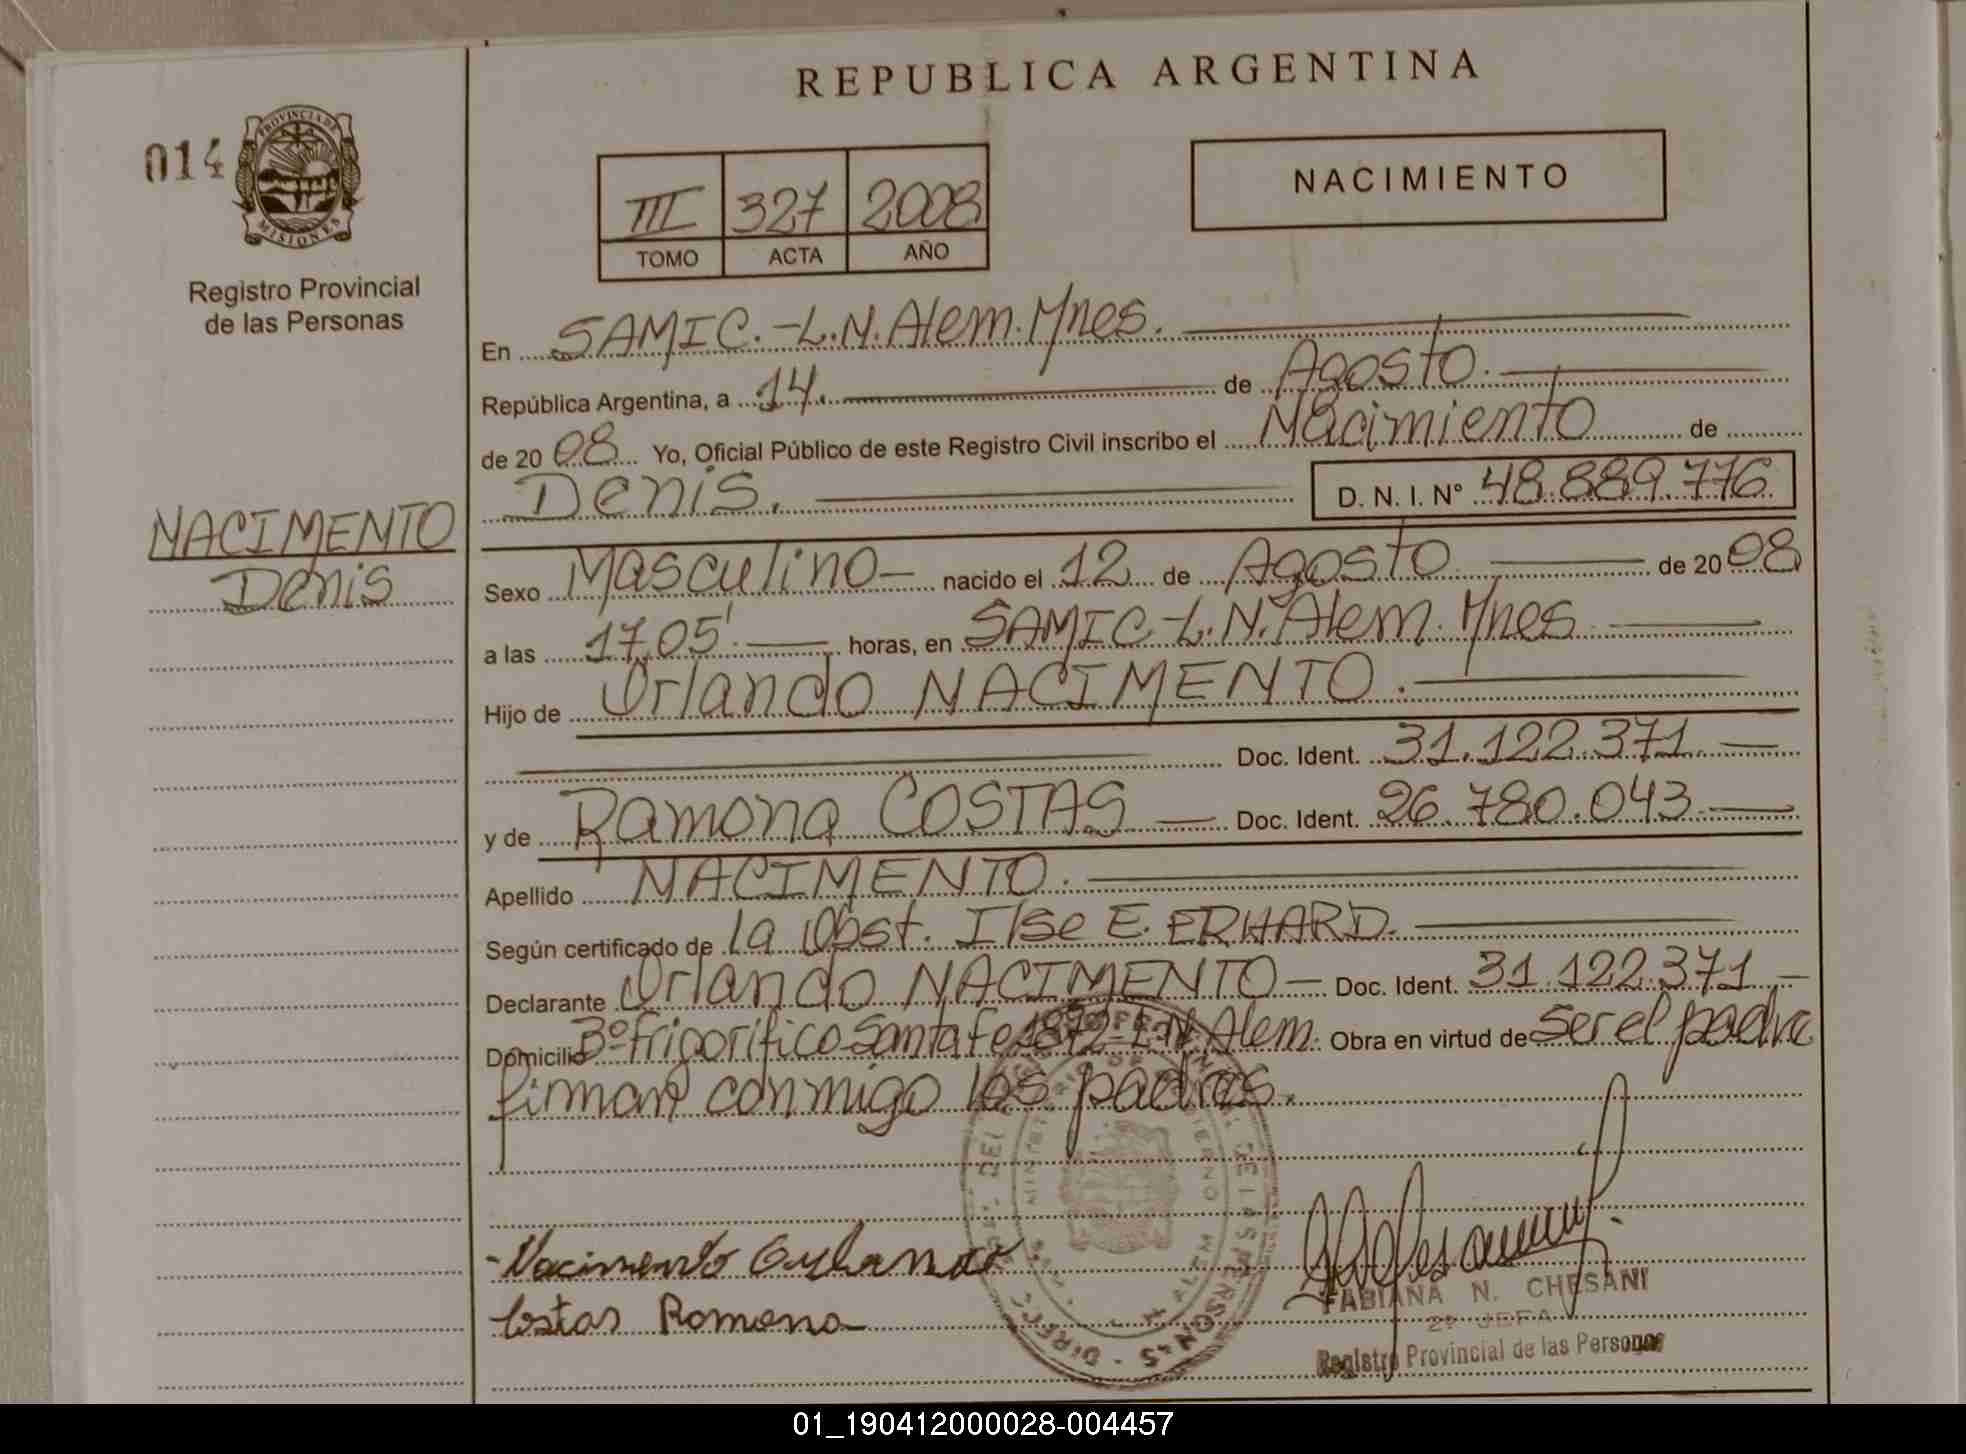 REPUBLICA ARGENTINA
014
PROVINCIA DE
MISIONES
Registro Provincial
de las Personas
III 327 2008
TOMO ACTA AÑO
NACIMIENTO
En SAMIC.-L.N.Alem.Mnes.
República Argentina, a 14. de Agosto.
de 2008 Yo, Oficial Público de este Registro Civil inscribo el Nacimiento de
Denis. D. N. I. N° 48.889.776
NACIMENTO
Denis
Sexo Masculino nacido el 12 de Agosto de 2008
a las 17.05' horas, en SAMIC-L.N.Alem.Mnes
Hijo de Orlando NACIMENTO.
Doc. Ident. 31.122.371
y de Ramona COSTAS Doc. Ident. 26.780.043
Apellido NACIMENTO.
Según certificado de la Obst. Ilse E. ERHARD.
Declarante Orlando NACIMENTO Doc. Ident. 31.122.371
Domicilio Bº Frigorífico Santa Fe 1872-L.N.Alem. Obra en virtud de Ser el padre
firman conmigo los padres.
Nacimento
Costas Romona
FABIANA N. CHESANI
2º JEFA
Registro Provincial de las Personas
01_190412000028-004457